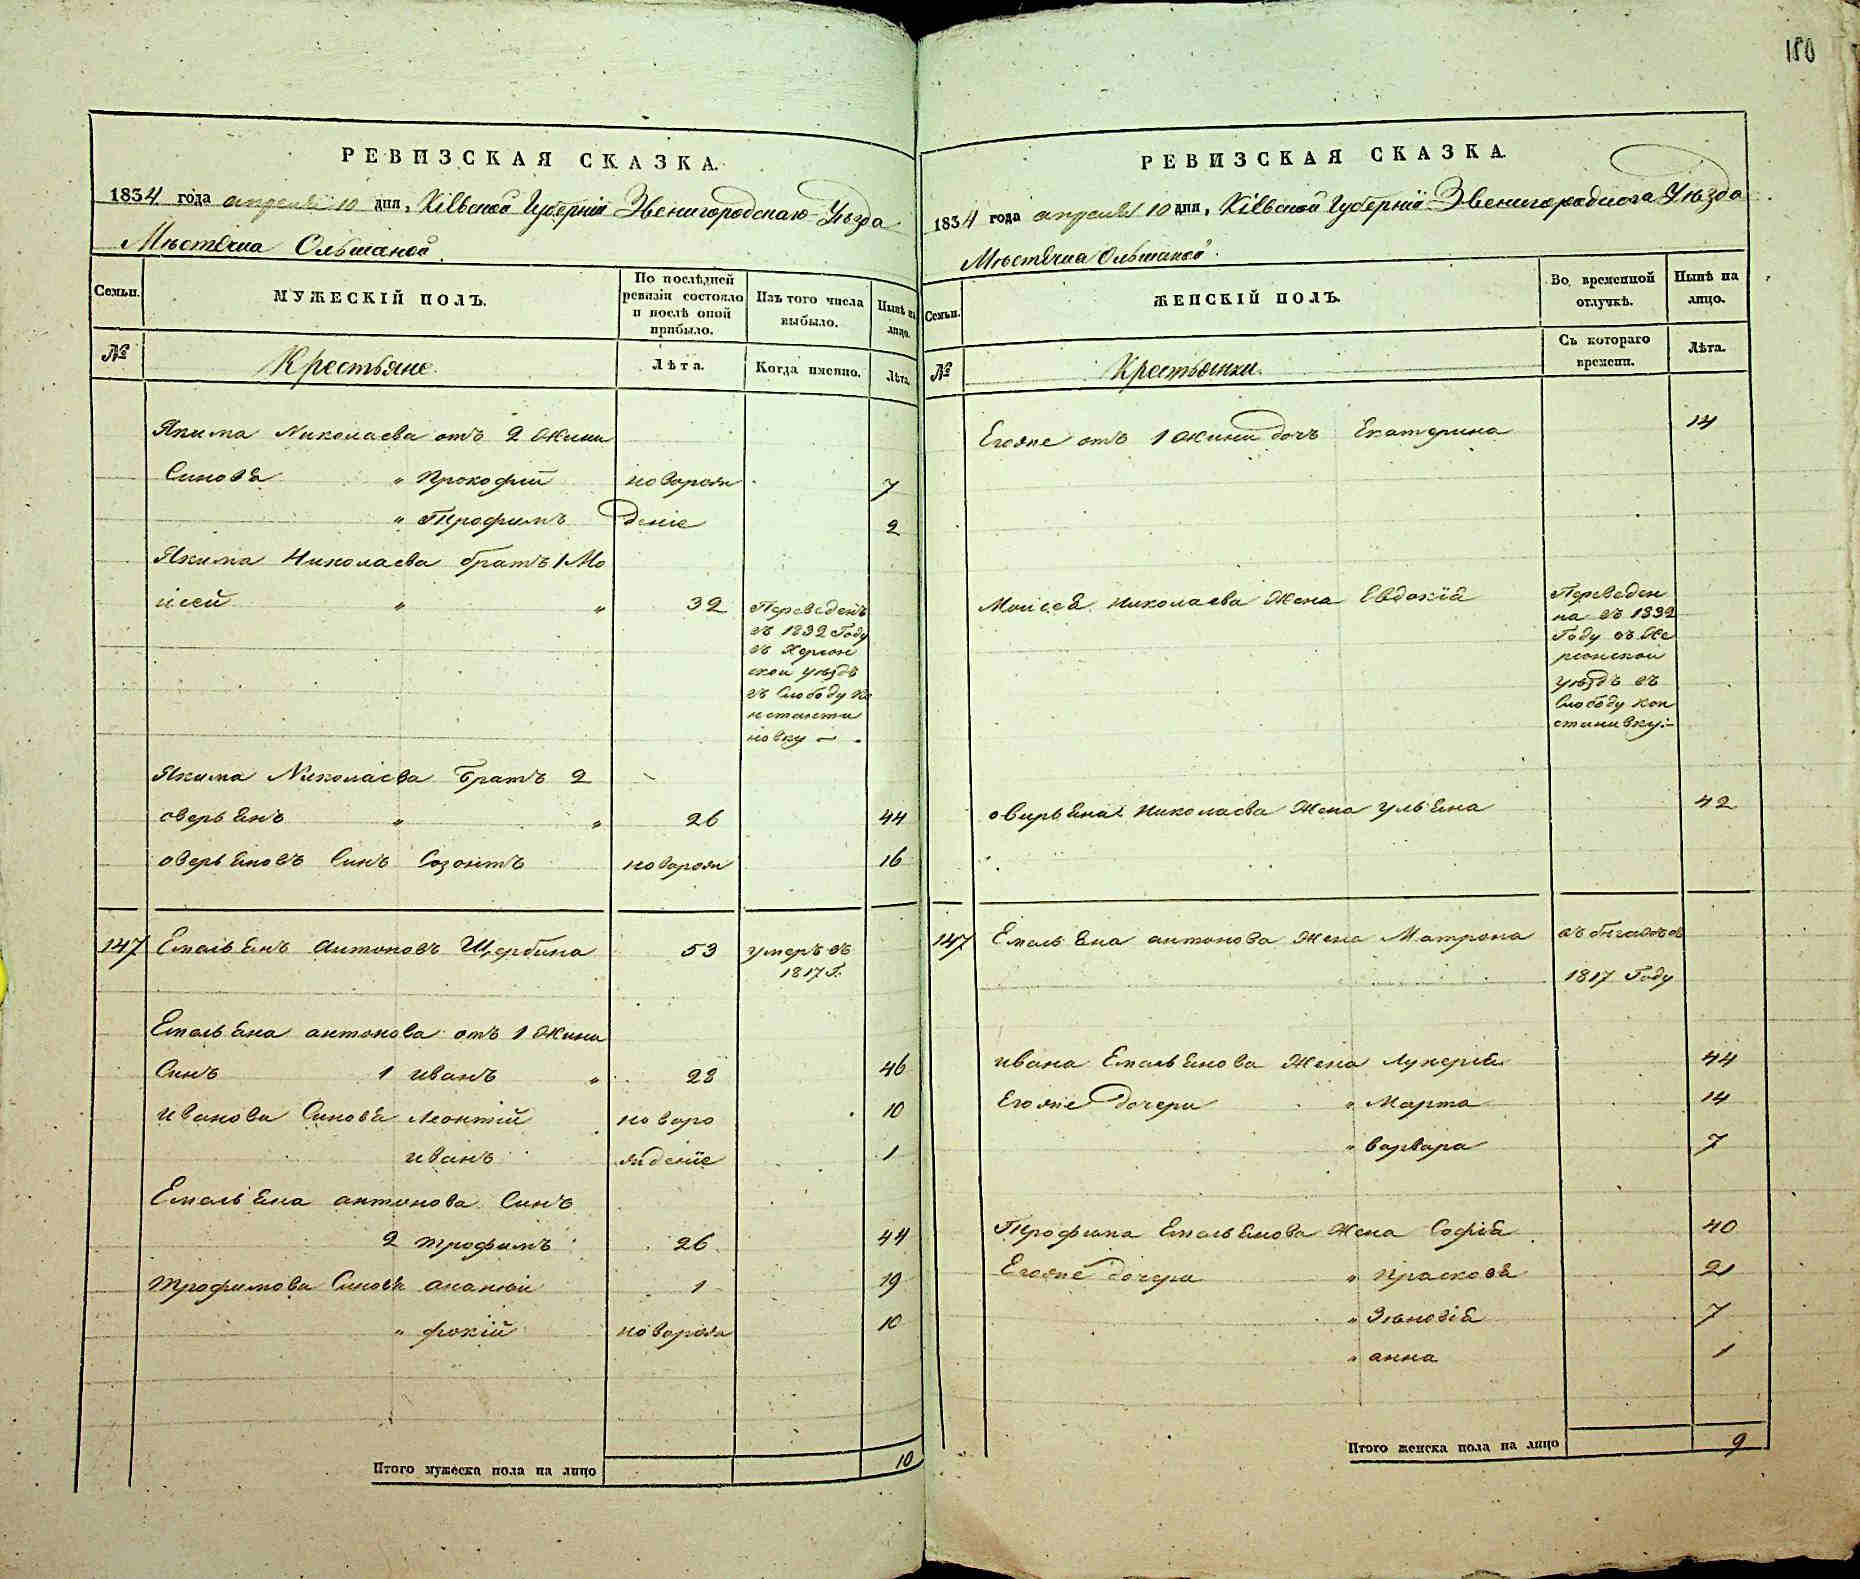 РЕВИЗСКАЯ СКАЗКА.
1834 года апреля 10 дня, Кіевской Губерніи Звенигородскаго Уѣзда
Мѣстечка Ольшаной.
Семьи.
МУЖЕСКІЙ ПОЛЪ.
По послѣдней
ревизіи состояло
и послѣ оной
прибыло.
Изъ того числа
выбыло.
Нынѣ на
лицо.
№
Крестьяне
Лѣта.
Когда именно.
Лѣта.
Якима Николаева отъ 2 жини
Синовя " Прокофій новорож 7
" Трофимъ деніе 2
Якима Николаева братъ 1 Мо
ісей " " 32 Переведенъ
въ 1832 Году
въ Херсон
ской уѣздъ
въ Слободу Ко
нстанти
новку
Якима Николаева братъ 2
оверьянъ " " 26 44
оверьяновъ Синъ Созонтъ новорож 16
147 Емельянъ Антоновъ Щербина 53 умеръ въ
1817 г.
Емельяна антонова отъ 1 жини
Синъ 1 иванъ " 28 46
иванова Синовя Леонтій новоро 10
иванъ жденіе 1
Емельяна антонова Синъ
2 трофимъ 26 44
трофимова Синовя ананій 1 19
" фокій новорож 10
Итого мужеска пола на лицо 10
150
РЕВИЗСКАЯ СКАЗКА.
1834 года апреля 10 дня, Кіевской Губерніи Звенигородскога Уѣзда
Мѣстечка Ольшаной.
Семьи.
ЖЕНСКІЙ ПОЛЪ.
Во временной
отлучкѣ.
Нынѣ на
лицо.
№
Крестьянки.
Съ котораго
времени.
Лѣта.
Егояже отъ 1 жини дочь Екатерина 14
Моисея Николаева Жена Евдокія Переведен
на въ 1832
Году въ Хе
рсонской
уѣздъ въ
Слободу кон
станивку:-
овирьяна Николаева Жена ульяна 42
147 Емельяна антонова жена Матрона въ бегахъ съ
1817 Году
ивана Емельянова Жена Лукерія 44
Егояже дочери " Марта 14
" варвара 7
Трофима Емельянова Жена Софія 40
Егояже дочери " Прасковя 21
" Зѣновія 7
" анна 1
Итого женска пола на лицо 9